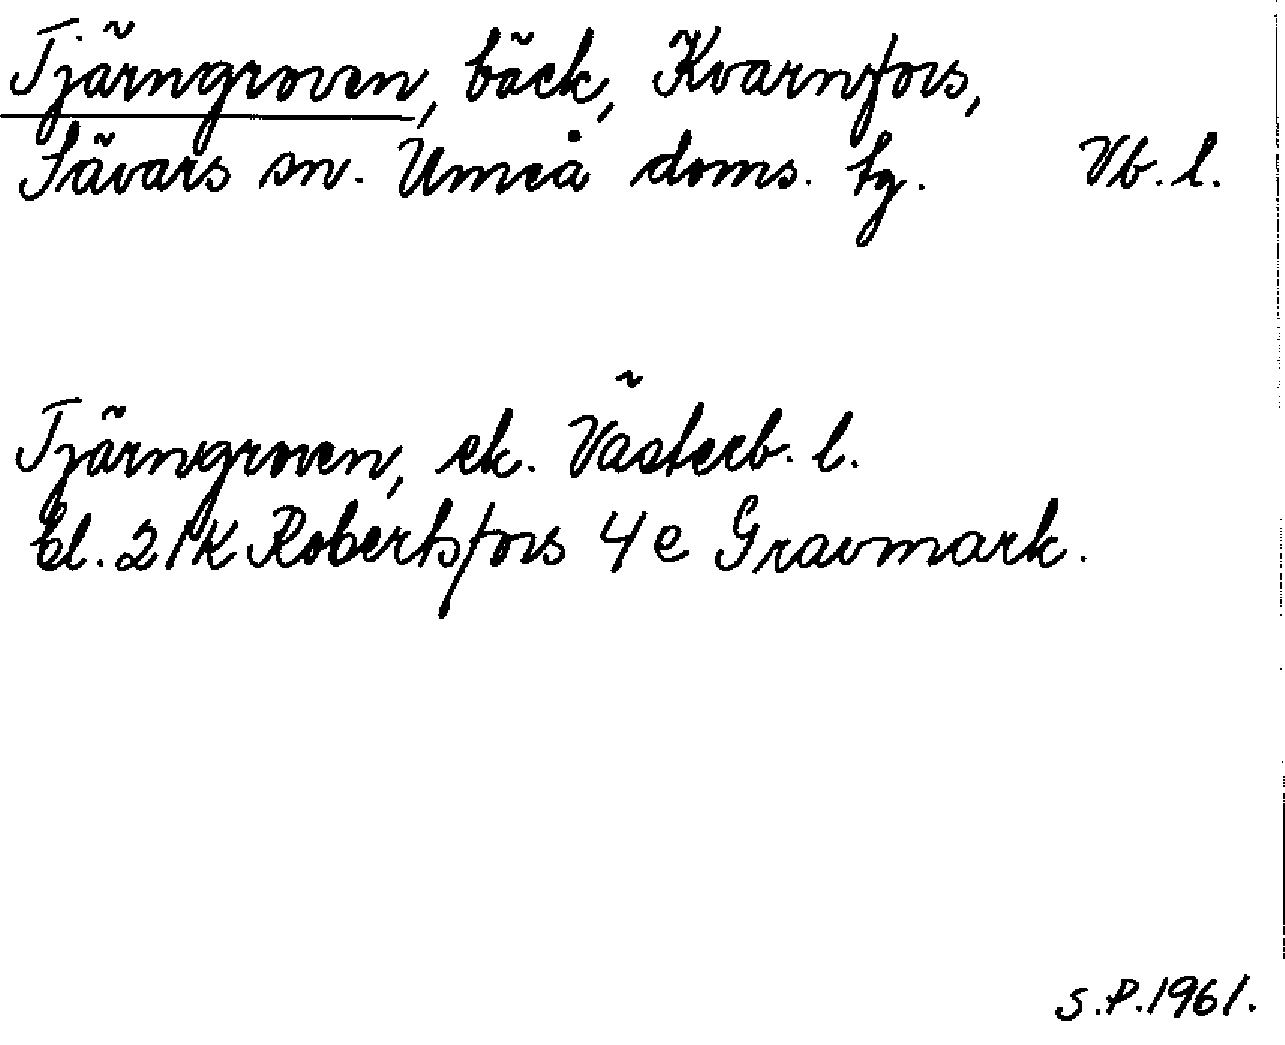 Tjärngroven, bäck, Kvarnfors,
Sävars sn. Umeå doms. tg. Vb. l.
Tjärngroven, ek. Västerb. l.
bl. 21K Robertsfors 4e Gravmark.
S.P.1961.